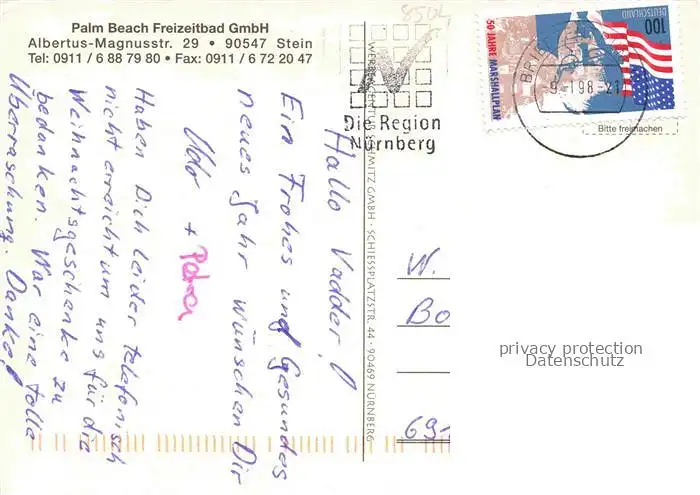 Palm Beach Freizeitbad GmbH
Albertus-Magnusstr. 29 • 90547 Stein
Tel: 0911 / 6 88 79 80 • Fax: 0911 / 6 72 20 47
Hallo Vadder!
Ein Frohes und Gesundes
neues Jahr wünschen Dir
Udo + Petra
Haben Dich leider telefonisch
nicht erreicht um uns für die
Weihnachtsgeschenke zu
bedanken. War eine tolle
Überraschung. Danke!
WERBEAGENTUR SCHMITZ GMBH · SCHIESSPLATZSTR. 44 · 90469 NÜRNBERG
8504
Die Region
Nürnberg
DEUTSCHLAND
100
50 JAHRE MARSHALLPLAN
BRIE
-9.-1.98-21
Bitte freimachen
W.
Bo
69-
privacy protection
Datenschutz